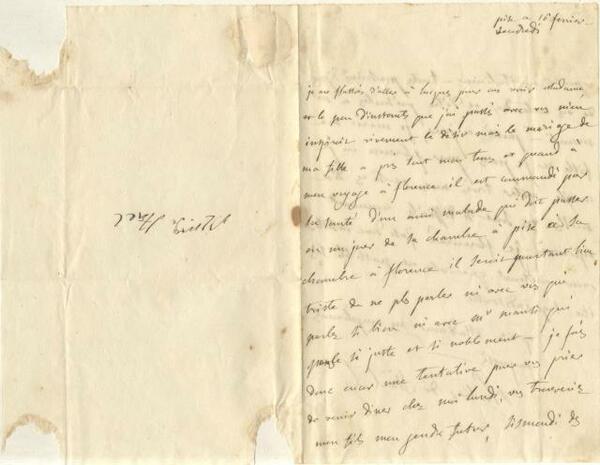 pise ce 16 fevrier
vendredi
je me flattois d'aller à lucques pour vous revoir madame,
et le peu d'instants que j'ai passés avec vous m'en
inspiroit vivement le désir mais le mariage de
ma fille a pris tout mon tems et quand à
mon voyage à florence il est commandé par
la santé d'un ami malade qui doit passer
en un jour de sa chambre à pise à sa
chambre à florence il seroit pourtant bien
triste de ne plus parler ni avec vous qui
parlez si bien ni avec mr manti qui
pense si juste et si noblement — je fais
donc encor une tentative pour vous prier
de venir diner chez moi lundi, vous trouveriez
mon fils mon gendre futur, sismondi &